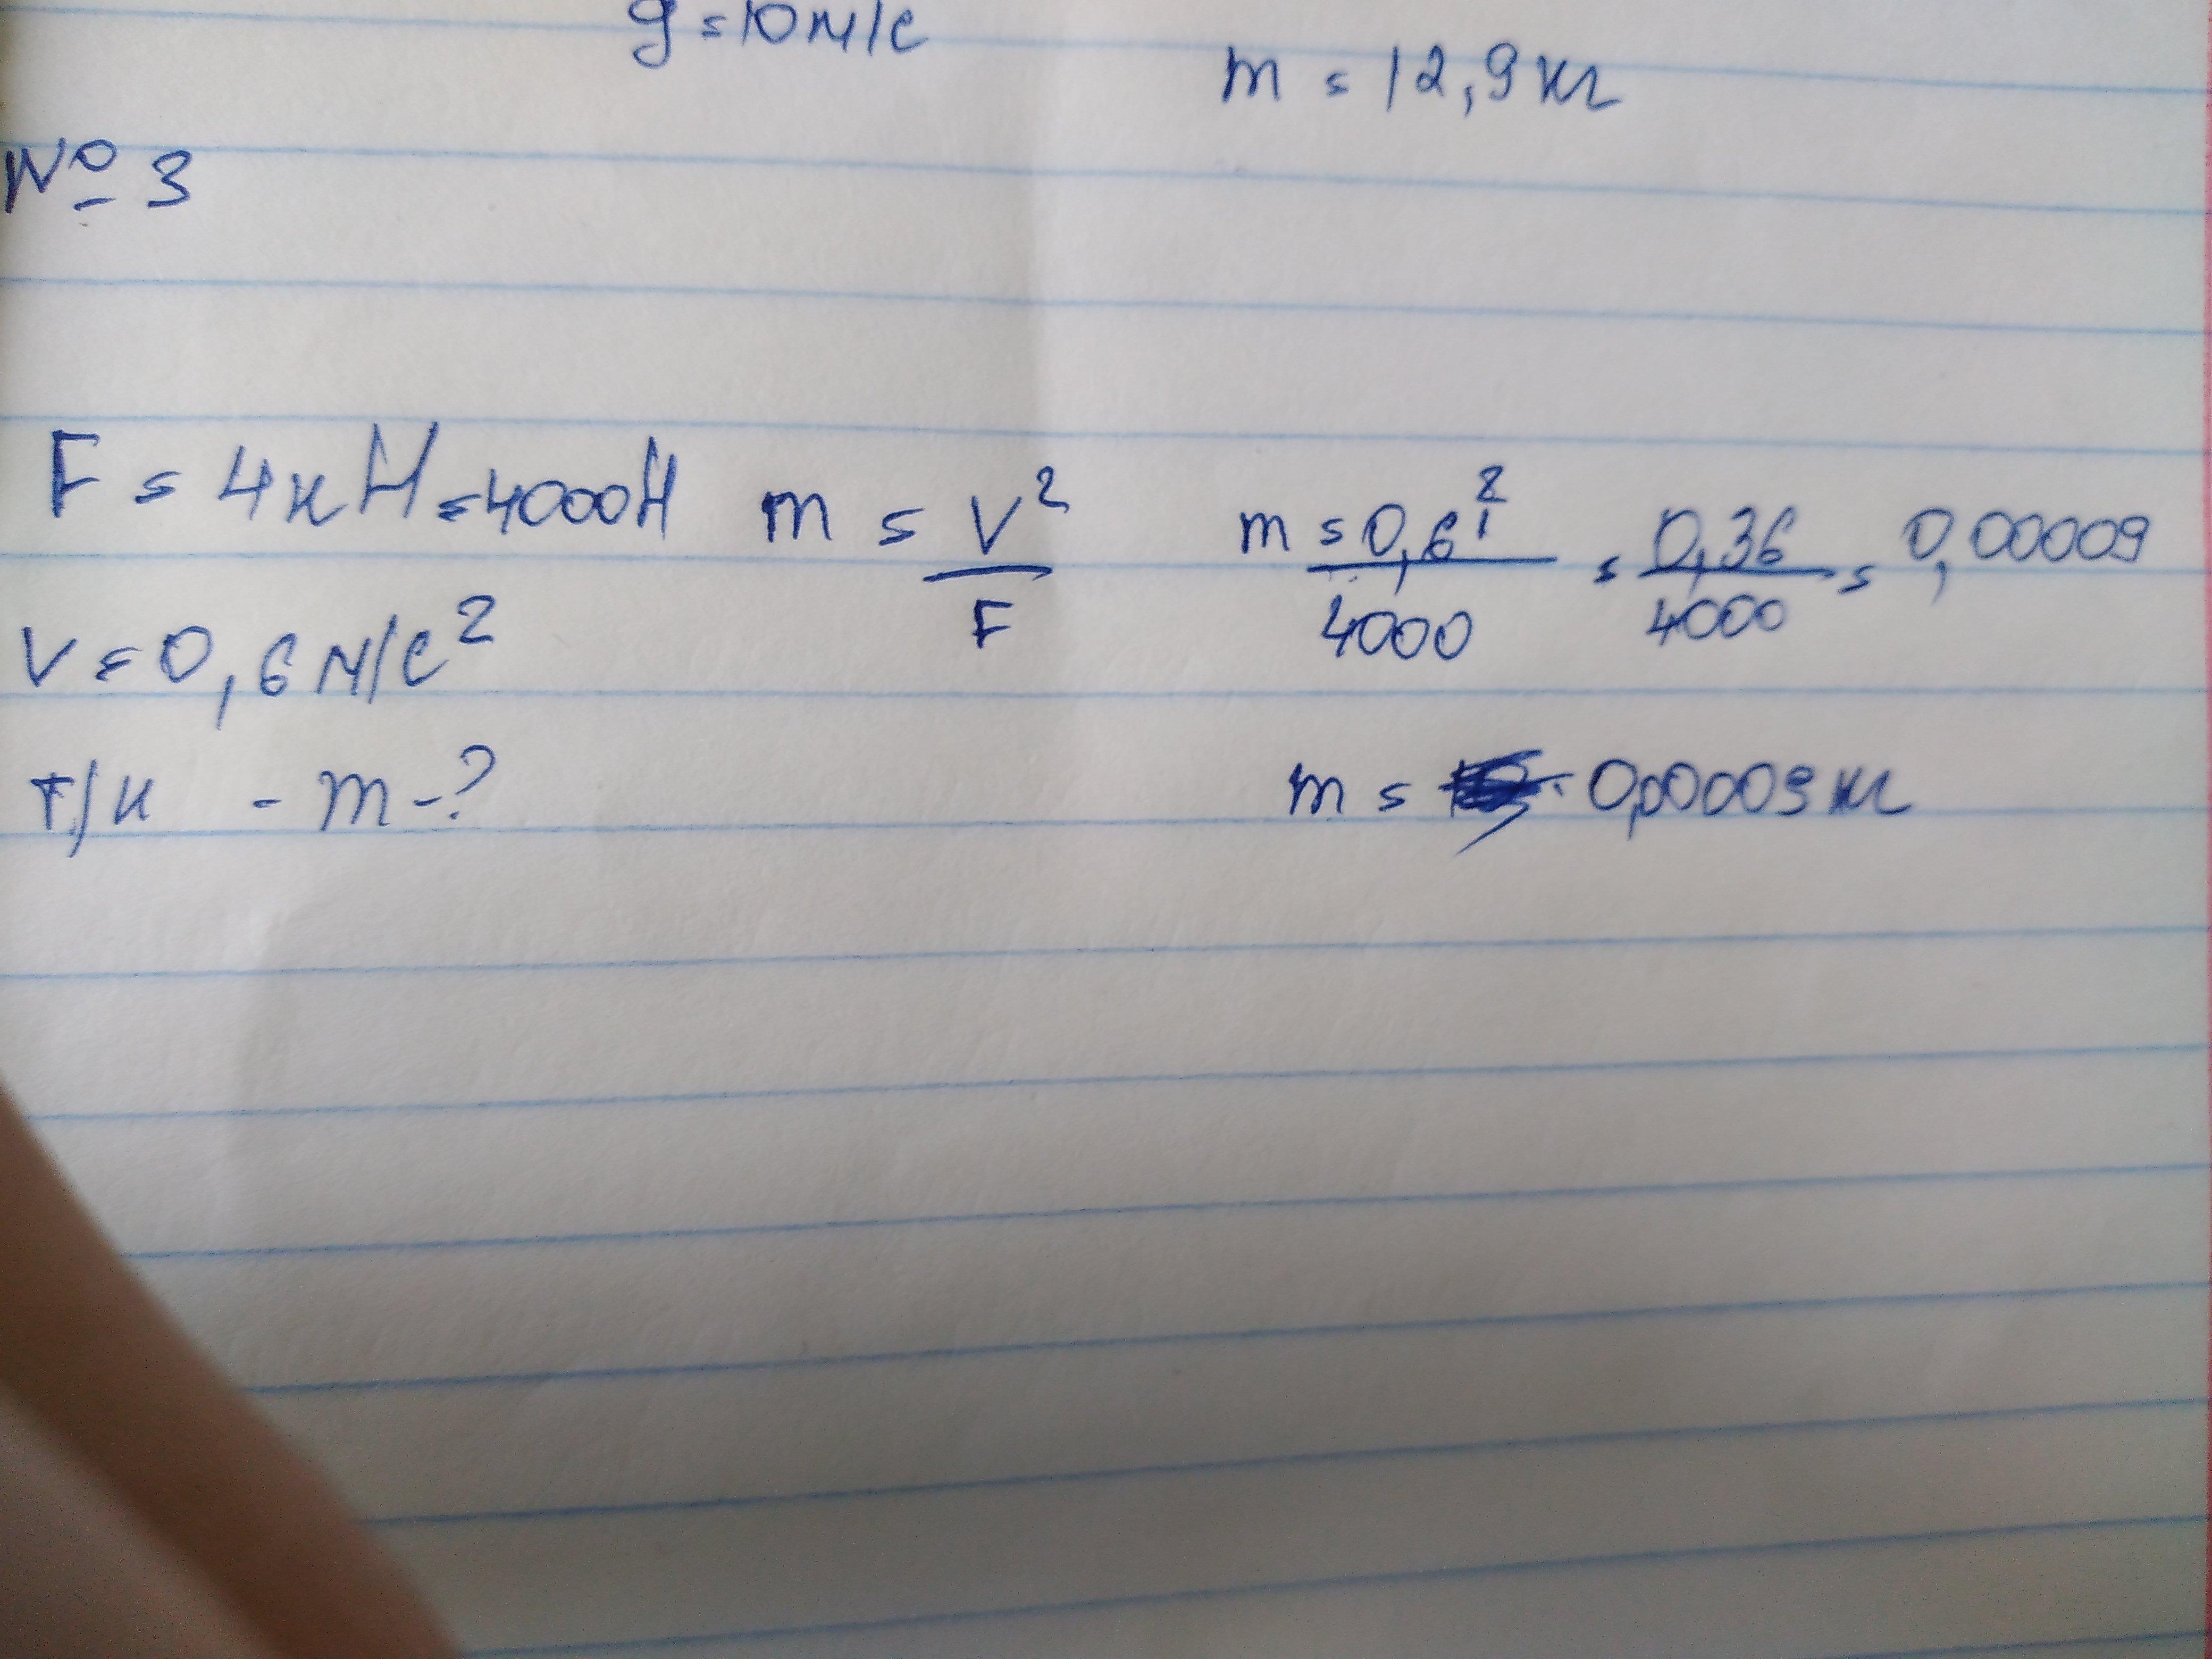 g = 10 м/с
m = 12,9 кг
№ 3
F = 4 кН = 4000Н m = V²/F m = 0,6²/4000 = 0,36/4000 = 0,00009
V = 0,6 м/с²
т/и - m - ?
m = 0,00009 кг